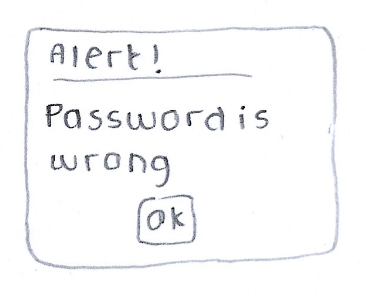 Alert!
Password is
wrong
Ok